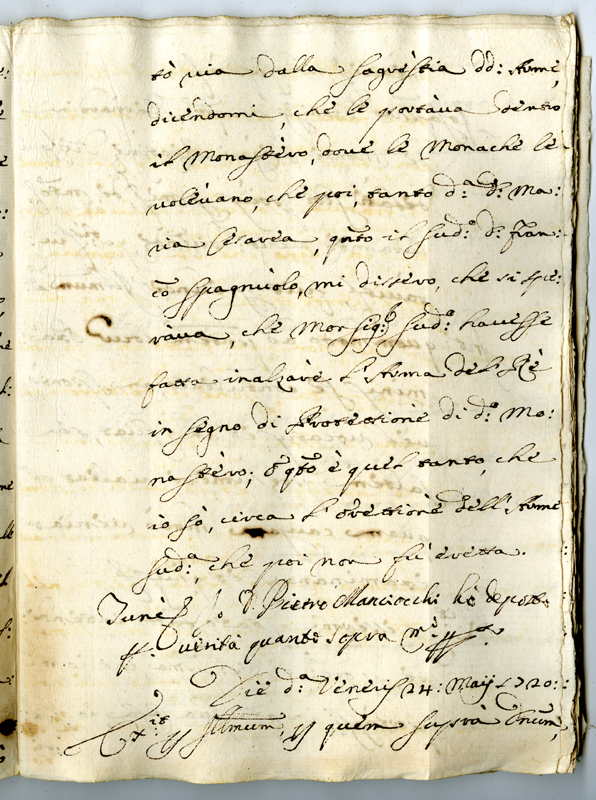 tò via dalla sagrèstia dd: Arme,
dicendomi, che le portàva dentro
il Monastèro, dove le Monache le
volèvano, che poi, tanto d:ª D: Ma:
ria Cesarea, qnto il sud:º D: Fran:
co Spagnuòlo, mi dissero, che si spe:
ràva, che Monsig:r sud:º havesse
fatta inalzàre l'Arma del Rè
in segno di Protettione di d:º Mo:
nastèro; e qto è quel tanto, che
io sò, circa l'erettiòne dell'Arme
sud:ª, che poi non fù eretta.
Io D. Pietro Manciocchi hò deposto
verità quanto sopra
Die d:ª Veneris 24: Maij 1720:
quem suprà